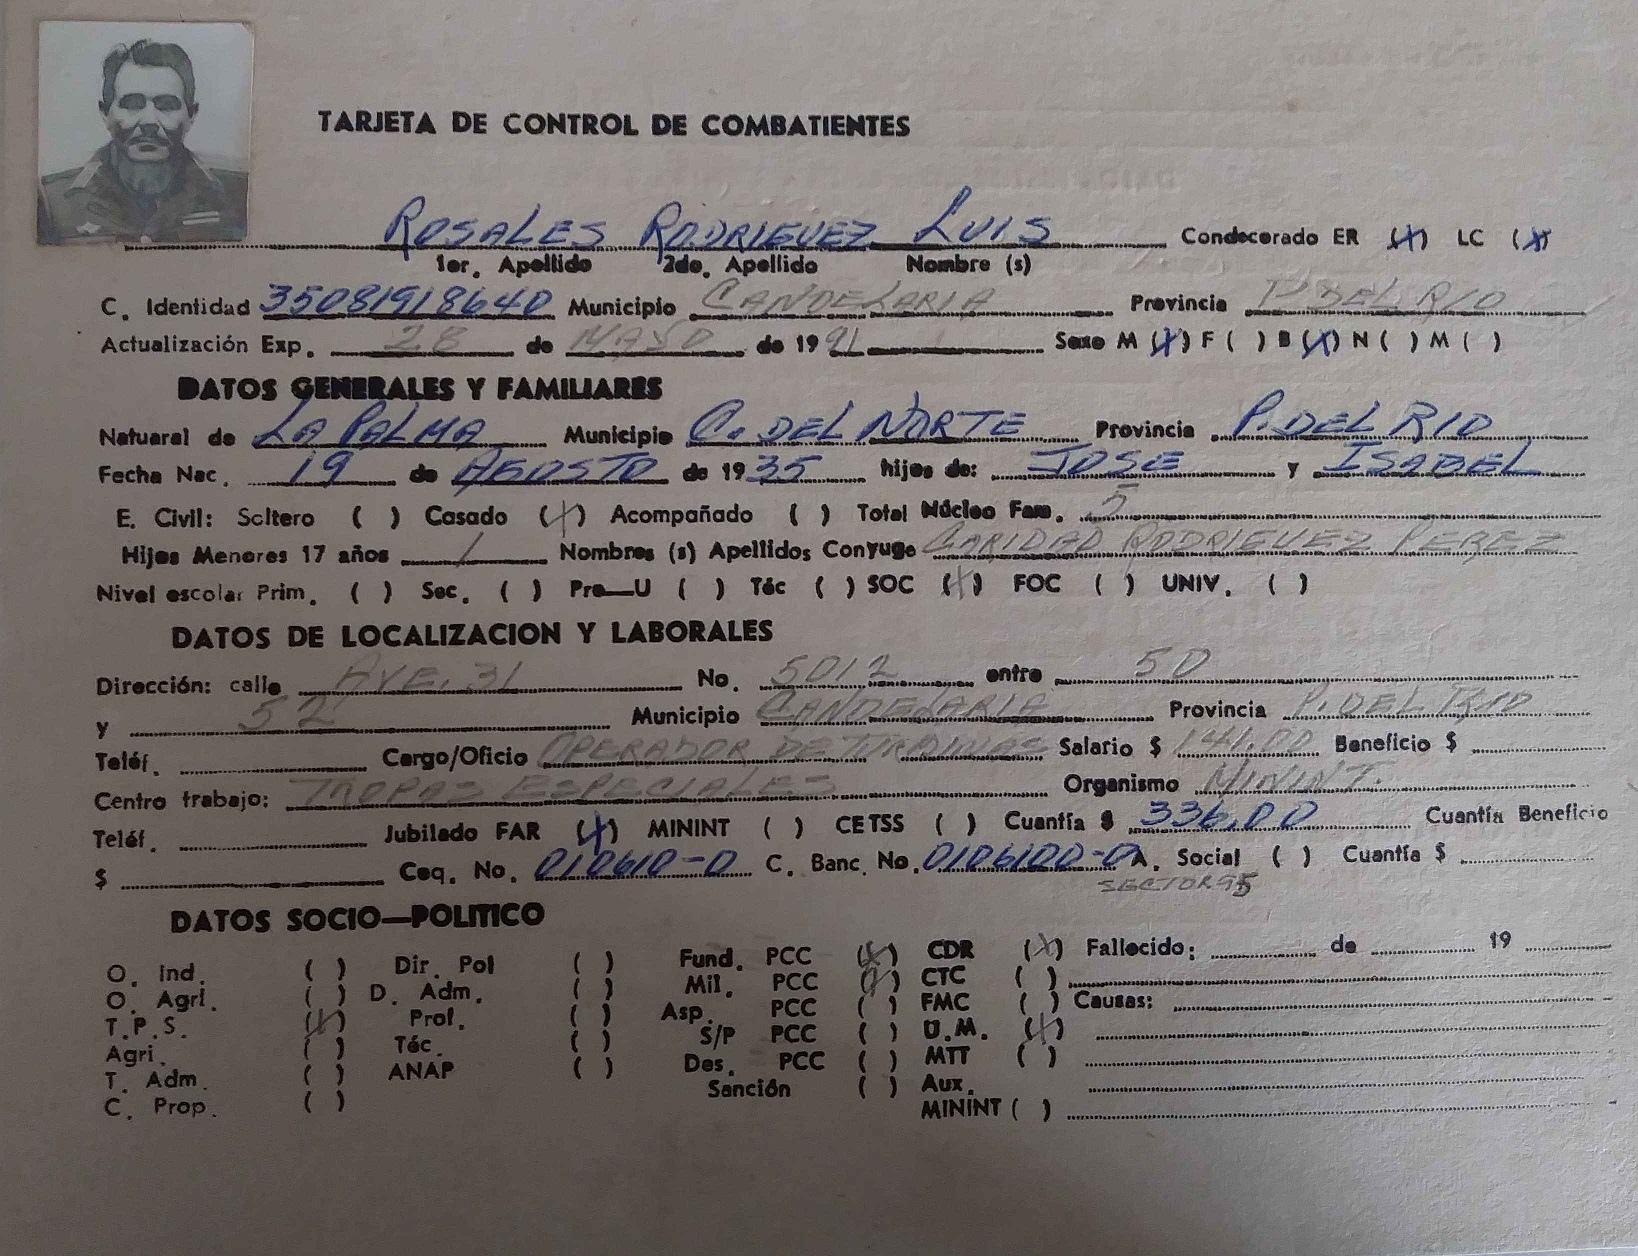 TARJETA DE CONTROL DE COMBATIENTES
ROSALES RODRIGUEZ LUIS Condecorado ER (X) LC (X)
1er. Apellido 2do. Apellido Nombre (s)
C. Identidad 35081918640 Municipio CANDELARIA Provincia P. DEL RIO
Actualización Exp. 28 de MAYO de 1991 Sexo M (X) F ( ) B (X) N ( ) M ( )
DATOS GENERALES Y FAMILIARES
Natuaral de LA PALMA Municipio C. DEL NORTE Provincia P. DEL RIO
Fecha Nac. 19 de AGOSTO de 1935 hijos de: JOSE y ISABEL
E. Civil: Scltero ( ) Casado (X) Acompañado ( ) Total Núcleo Fam. 5
Hijos Menores 17 años 1 Nombres (s) Apellidos Conyuge CARIDAD RODRIGUEZ PEREZ
Nivel escolar Prim. ( ) Sec. ( ) Pre—U ( ) Téc ( ) SOC (X) FOC ( ) UNIV. ( )
DATOS DE LOCALIZACION Y LABORALES
Dirección: calle AVE. 31 No. 5012 entre 50
y 52 Municipio CANDELARIA Provincia P. DEL RIO
Teléf. Cargo/Oficio OPERADOR DE TURBINAS Salario $ 141.00 Beneficio $
Centro trabajo: TROPAS ESPECIALES Organismo MININT.
Teléf. Jubilado FAR (X) MININT ( ) CETSS ( ) Cuantía $ 336.00 Cuantía Beneficio
$ Ceq. No. 010610-0 C. Banc. No. 0106100-0 A. Social ( ) Cuantía $
SECTOR 95
DATOS SOCIO—POLITICO
O. Ind. ( ) Dir. Pol ( ) Fund. PCC (X) CDR (X) Fallecido: de 19
O. Agri. ( ) D. Adm. ( ) Mil. PCC (X) CTC ( )
T.P.S. (X) Prof. ( ) Asp. PCC ( ) FMC ( ) Causas:
Agri. ( ) Téc. ( ) S/P PCC ( ) U.M. (X)
T. Adm. ( ) ANAP ( ) Des. PCC ( ) MTT ( )
C. Prop. ( ) Sanción ( ) Aux.
MININT ( )